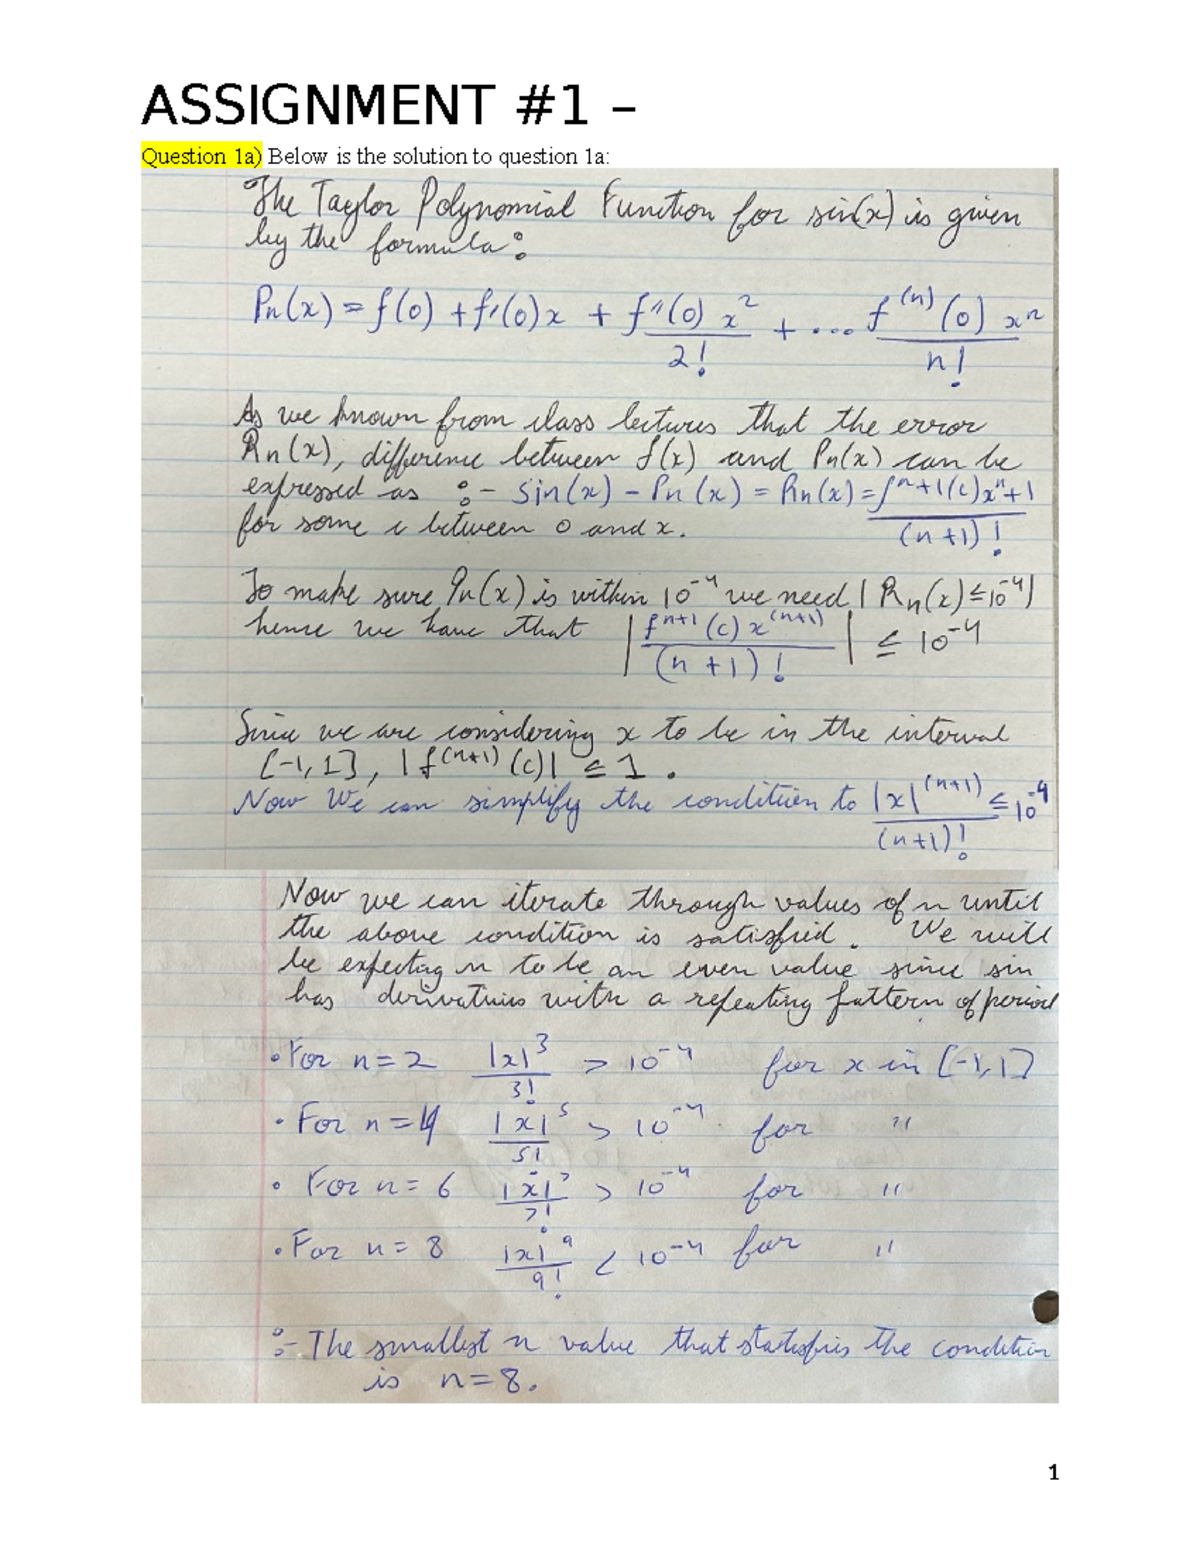 ASSIGNMENT #1 –
Question 1a) Below is the solution to question 1a:
The Taylor Polynomial Function for sin(x) is given
by the formula:
Pn(x) = f(0) + f'(0)x + f''(0) x² / 2! + ... f⁽ⁿ⁾(0) xⁿ / n!
As we known from class lectures that the error
Rn(x), difference between f(x) and Pn(x) can be
expressed as :- sin(x) - Pn(x) = Rn(x) = fⁿ⁺¹(c)xⁿ⁺¹ / (n+1)!
for some c between 0 and x.
To make sure Pn(x) is within 10⁻⁴ we need | Rn(x) ≤ 10⁻⁴|
hence we have that | fⁿ⁺¹(c) x⁽ⁿ⁺¹⁾ / (n+1)! | ≤ 10⁻⁴
Since we are considering x to be in the interval
[-1, 1], |f⁽ⁿ⁺¹⁾(c)| ≤ 1.
Now We can simplify the condition to |x|⁽ⁿ⁺¹⁾ / (n+1)! ≤ 10⁻⁴
Now we can iterate through values of n until
the above condition is satisfied. We will
be expecting n to be an even value since sin
has derivatives with a repeating pattern of period
• For n=2 |x|³ / 3! > 10⁻⁴ for x in [-1,1]
• For n=4 |x|⁵ / 5! > 10⁻⁴ for "
• For n=6 |x|⁷ / 7! > 10⁻⁴ for "
• For n=8 |x|⁹ / 9! < 10⁻⁴ for "
:- The smallest n value that statisfies the condition
is n=8.
1